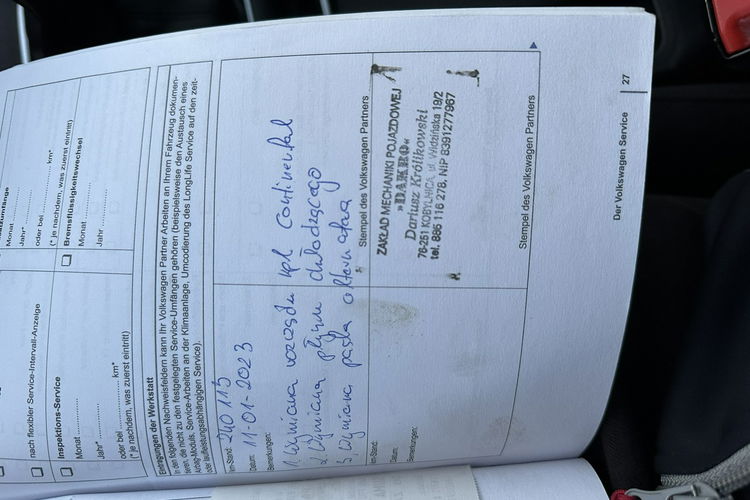 Monat
Jahr*
oder bei ............ km*
(* je nachdem, was zuerst eintritt)
Bremsflüssigkeitswechsel
Monat
Jahr
nach flexibler Service-Intervall-Anzeige
Inspektions-Service
Monat
Jahr*
oder bei ............ km*
(* je nachdem, was zuerst eintritt)
Eintragungen der Werkstatt
In den folgenden Nachweisfeldern kann Ihr Volkswagen Partner Arbeiten an Ihrem Fahrzeug dokumen-
tieren, die nicht zu den festgelegten Service-Umfängen gehören (beispielsweise den Austausch eines
Airbag-Moduls, Service-Arbeiten an der Klimaanlage, Umcodierung des LongLife Service auf den zeit-
oder laufleistungsabhängigen Service).
km-Stand: 240 115
Datum: 11-01-2023
Bemerkungen:
1. Wymiana rozrządu kpl continental
2, Wymiana płynu chłodzącego
3, Wymiana paska alternatora
Stempel des Volkswagen Partners
km-Stand:
Datum:
Bemerkungen:
ZAKŁAD MECHANIKI POJAZDOWEJ
"DAKRO"
Dariusz Królikowski
76-251 KOBYLNICA, ul. Widzińska 19/2
tel. 886 116 278, NIP 8391277967
Stempel des Volkswagen Partners
Der Volkswagen Service
27